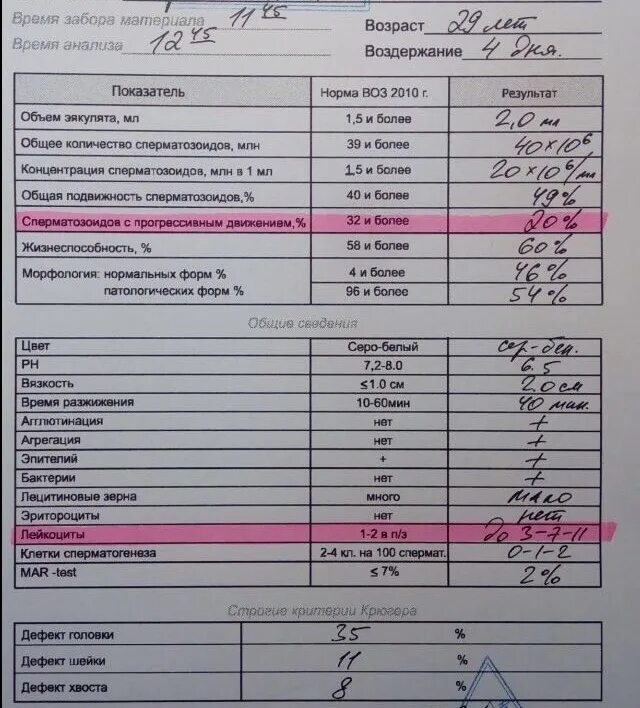 Время забора материала 11 45
Возраст 29 лет
Время анализа 12 45
Воздержание 4 дня.
Показатель Норма ВОЗ 2010 г. Результат
Объем эякулята, мл 1,5 и более 2,0 мл
Общее количество сперматозоидов, млн 39 и более 40×10⁶
Концентрация сперматозоидов, млн в 1 мл 1,5 и более 20×10⁶/мл
Общая подвижность сперматозоидов,% 40 и более 49%
Сперматозоидов с прогрессивным движением,% 32 и более 20%
Жизнеспособность, % 58 и более 60%
Морфология: нормальных форм % 4 и более 46%
патологических форм % 96 и более 54%
Общие сведения
Цвет Серо-белый сер-бел.
PH 7,2-8.0 6.5
Вязкость ≤1.0 см 2.0 см
Время разжижения 10-60мин 40 мин.
Агглютинация нет +
Агрегация нет +
Эпителий + +
Бактерии нет +
Лецитиновые зерна много мало
Эритороциты нет нет
Лейкоциты 1-2 в п/з до 3-7-11
Клетки сперматогенеза 2-4 кл. на 100 спермат. 0-1-2
MAR -test ≤ 7% 2%
Строгие критерии Крюгера
Дефект головки 35 %
Дефект шейки 11 %
Дефект хвоста 8 %